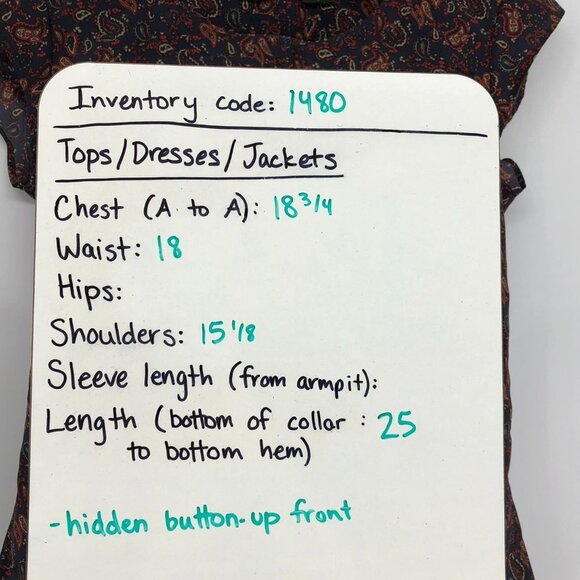 Inventory code: 1480
Tops/Dresses/Jackets
Chest (A to A): 18 3/4
Waist: 18
Hips:
Shoulders: 15 1/8
Sleeve length (from armpit):
Length (bottom of collar : 25
to bottom hem)
-hidden button-up front